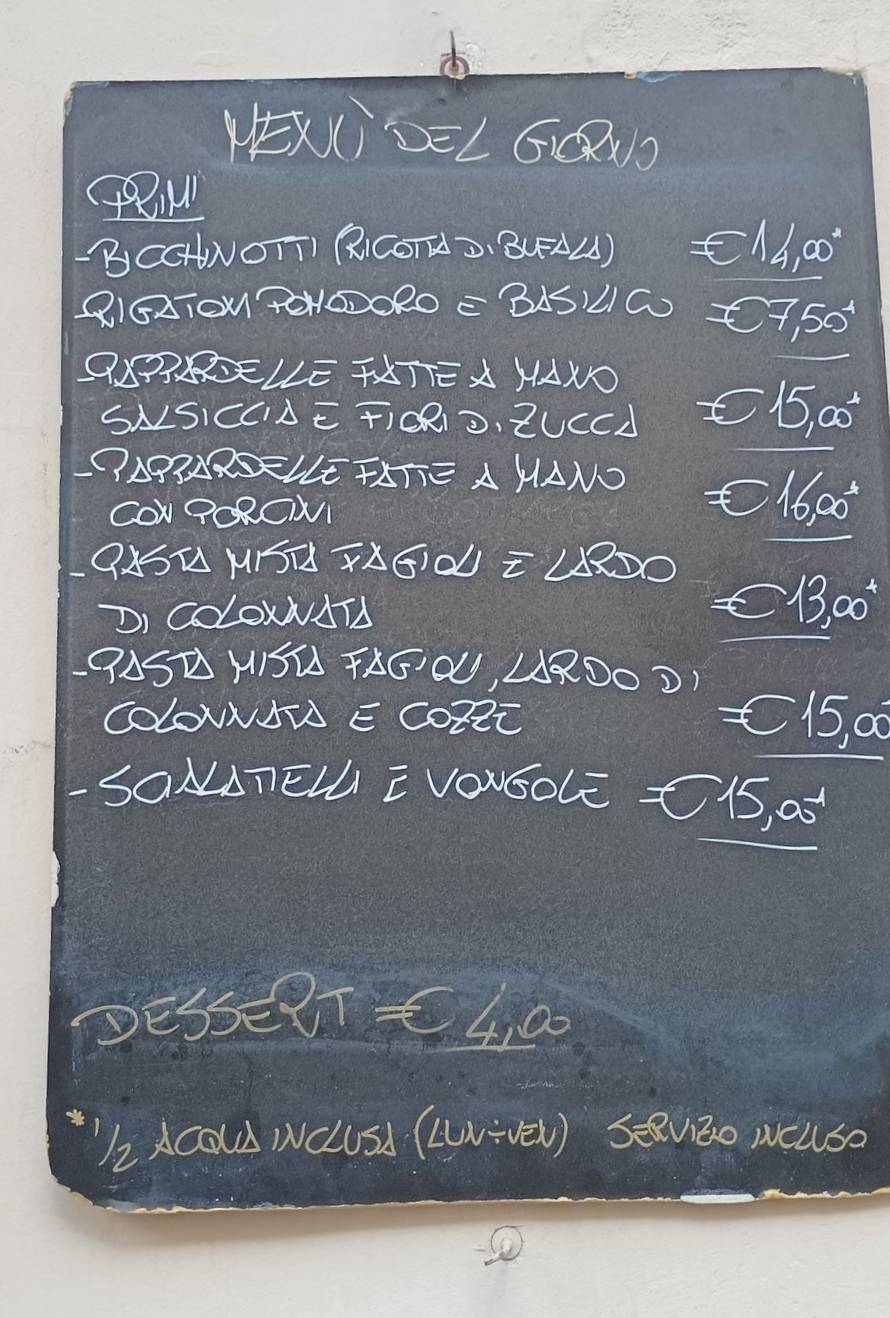 MENÙ DEL GIORNO
PRIMI
- BICCHINOTTI (RICOTTA DI BUFALA) €14,00*
- RIGATONI POMODORO E BASILICO €7,50*
- PAPPARDELLE FATTE A MANO
SALSICCIA E FIORI DI ZUCCA €15,00*
- PAPPARDELLE FATTE A MANO
CON PORCINI €16,00*
- PASTA MISTA FAGIOLI E LARDO
DI COLONNATA €13,00*
- PASTA MISTA FAGIOLI, LARDO DI
COLONNATA E COZZE €15,00
- SCIALATIELLI E VONGOLE €15,00*
DESSERT €4,00
*1/2 ACQUA INCLUSA (LUN÷VEN) SERVIZIO INCLUSO